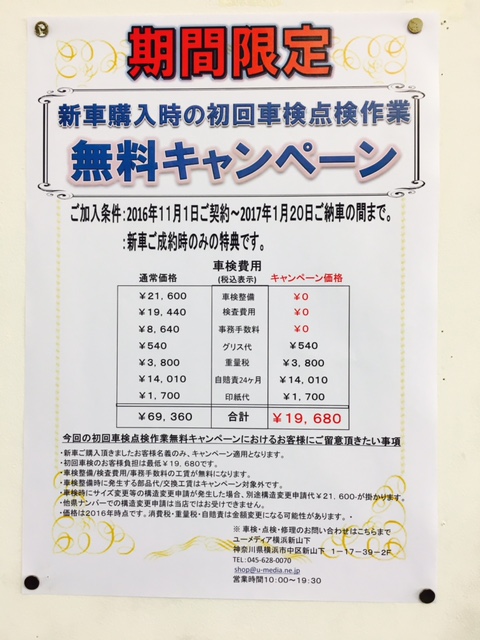 期間限定
新車購入時の初回車検点検作業
無料キャンペーン
ご加入条件:2016年11月1日ご契約～2017年1月20日ご納車の間まで。
:新車ご成約時のみの特典です。
車検費用
通常価格 (税込表示) キャンペーン価格
￥21,600 車検整備 ￥0
￥19,440 検査費用 ￥0
￥8,640 事務手数料 ￥0
￥540 グリス代 ￥540
￥3,800 重量税 ￥3,800
￥14,010 自賠責24ヶ月 ￥14,010
￥1,700 印紙代 ￥1,700
￥69,360 合計 ￥19,680
今回の初回車検点検作業無料キャンペーンにおけるお客様にご留意頂きたい事項
・新車ご購入頂きましたお客様名義のみ、キャンペーン適用となります。
・初回車検のお客様負担は最低￥19,680です。
・車検整備/検査費用/事務手数料の工賃が無料になります。
・車検整備時に発生する部品代/交換工賃はキャンペーン対象外です。
・車検時にサイズ変更等の構造変更申請が発生した場合、別途構造変更申請代￥21,600が掛かります。
・他県ナンバーでの構造変更申請は当店ではお受けできません。
・価格は2016年時点です。消費税・重量税・自賠責は金額変更になる可能性があります。
※ 車検・点検・修理のお問い合わせはこちらまで
ユーメディア横浜新山下
神奈川県横浜市中区新山下 1－17－39－2F
TEL:045-628-0070
shop@u-media.ne.jp
営業時間10:00～19:30